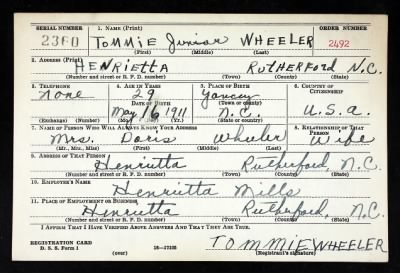 SERIAL NUMBER 1. NAME (Print) ORDER NUMBER
2360 TOMMIE Junior WHEELER 2492
(First) (Middle) (Last)
2. ADDRESS (Print)
HENRIETTA RUTHERFORD N.C.
(Number and street or R. F. D. number) (Town) (County) (State)
3. TELEPHONE 4. AGE IN YEARS 5. PLACE OF BIRTH 6. COUNTRY OF CITIZENSHIP
none 29 Yancey
DATE OF BIRTH (Town or county)
May 16 1911 N.C. U.S.A.
(Exchange) (Number) (Mo.) (Day) (Yr.) (State or country)
7. NAME OF PERSON WHO WILL ALWAYS KNOW YOUR ADDRESS 8. RELATIONSHIP OF THAT PERSON
Mrs. Doris Wheeler Wife
(Mr., Mrs., Miss) (First) (Middle) (Last)
9. ADDRESS OF THAT PERSON
Henrietta Rutherford N.C.
(Number and street or R. F. D. number) (Town) (County) (State)
10. EMPLOYER'S NAME
Henrietta Mills
11. PLACE OF EMPLOYMENT OR BUSINESS
Henrietta Rutherford, N.C.
(Number and street or R. F. D. number) (Town) (County) (State)
I AFFIRM THAT I HAVE VERIFIED ABOVE ANSWERS AND THAT THEY ARE TRUE.
REGISTRATION CARD TOMMIE WHEELER
D. S. S. Form 1 (over) 16-17105 (Registrant's signature)